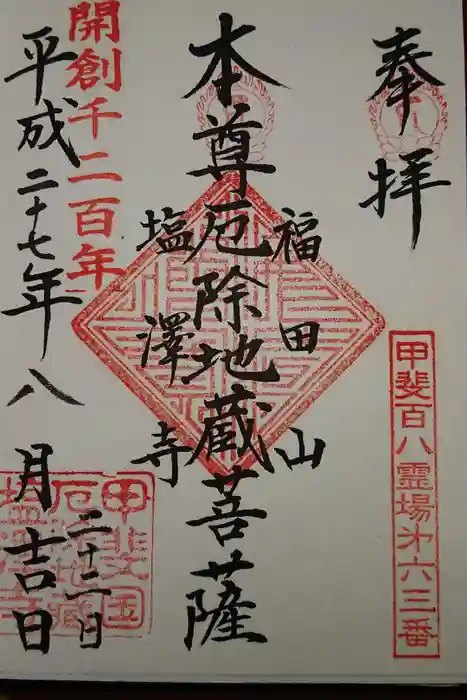 奉拝
甲斐百八霊場第六三番
福田山
本尊厄除地蔵菩薩
塩澤寺
開創千二百年
平成二十七年八月吉日
二十二日
甲斐国
厄除地蔵
塩澤寺